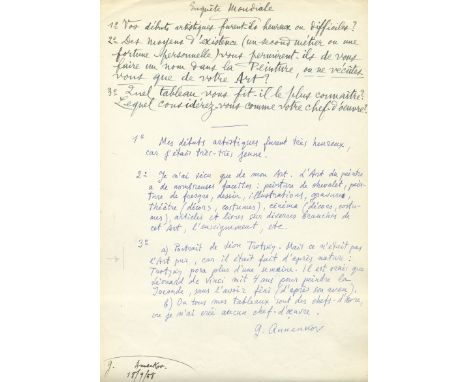 Enquête Mondiale
1º Vos débuts artistiques furent-ils heureux ou difficiles?
2º Des moyens d'existence (un second métier ou une
fortune personnelle) vous permirent-ils de vous
faire un nom dans la Peinture, ou ne vécûtes
vous que de votre Art?
3º Quel tableau vous fit-il le plus connaître?
Lequel considérez-vous comme votre chef d'œuvre?
1º Mes débuts artistiques furent très heureux,
car j'étais très-très jeune.
2º Je n'ai vécu que de mon Art. L'Art du peintre
a de nombreuses facettes: peinture de chevalet, pein-
ture de fresque, dessin, illustrations, gravures,
théâtre (décors, costumes), cinéma (décors, costu-
mes), articles et livres sur diverses branches de
cet Art, l'enseignement, etc.
3º a) Portrait de Léon Trotzky. Mais ce n'était pas
l'Art pur, car il était fait d'après nature:
Trotzky posa plus d'une semaine. Il est vrai que
Léonard de Vinci mit 4 ans pour peindre la
Joconde, sans l'avoir fini (d'après son aveu).
b) Ou tous mes tableaux sont des chefs-d'œuvre,
ou je n'ai créé aucun chef-d'œuvre.
G. Annenkov
g. Annenkov.